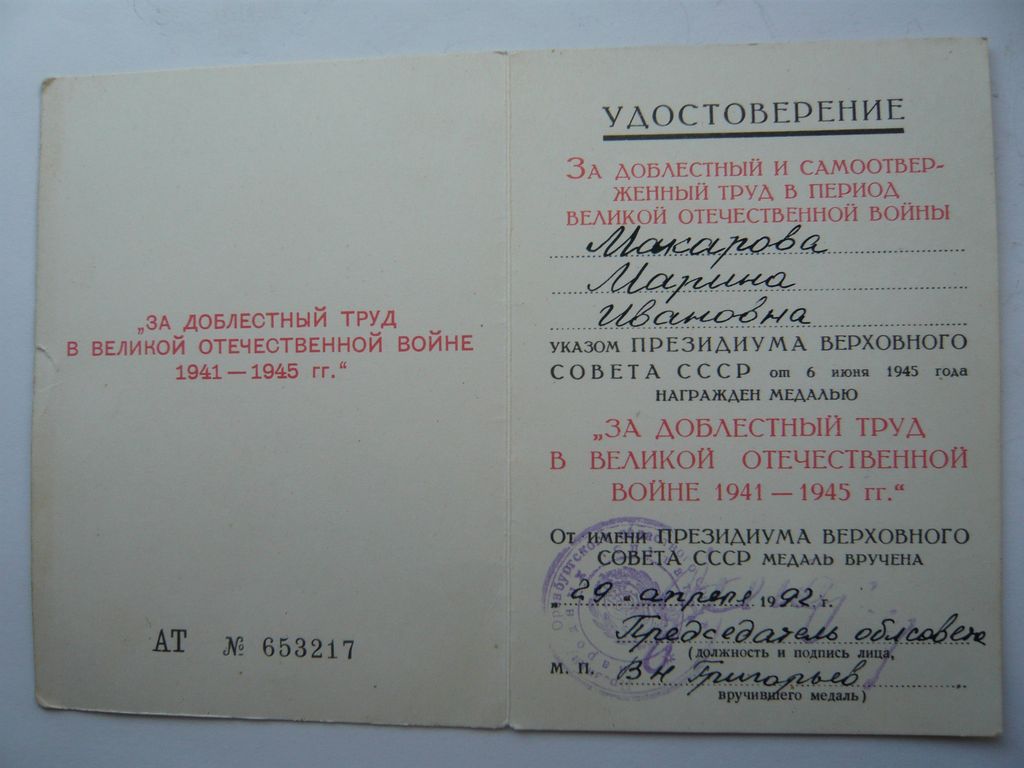 „ЗА ДОБЛЕСТНЫЙ ТРУД
В ВЕЛИКОЙ ОТЕЧЕСТВЕННОЙ ВОЙНЕ
1941 — 1945 гг.“
АТ № 653217
УДОСТОВЕРЕНИЕ
ЗА ДОБЛЕСТНЫЙ И САМООТВЕР-
ЖЕННЫЙ ТРУД В ПЕРИОД
ВЕЛИКОЙ ОТЕЧЕСТВЕННОЙ ВОЙНЫ
Макарова
Марина
Ивановна
УКАЗОМ ПРЕЗИДИУМА ВЕРХОВНОГО
СОВЕТА СССР от 6 июня 1945 года
НАГРАЖДЕН МЕДАЛЬЮ
„ЗА ДОБЛЕСТНЫЙ ТРУД
В ВЕЛИКОЙ ОТЕЧЕСТВЕННОЙ
ВОЙНЕ 1941 — 1945 гг.“
ОТ ИМЕНИ ПРЕЗИДИУМА ВЕРХОВНОГО
СОВЕТА СССР МЕДАЛЬ ВРУЧЕНА
„29“ апреля 1992 г.
Председатель облсовета
(должность и подпись лица,
М. П. В Н Григорьев
вручившего медаль)